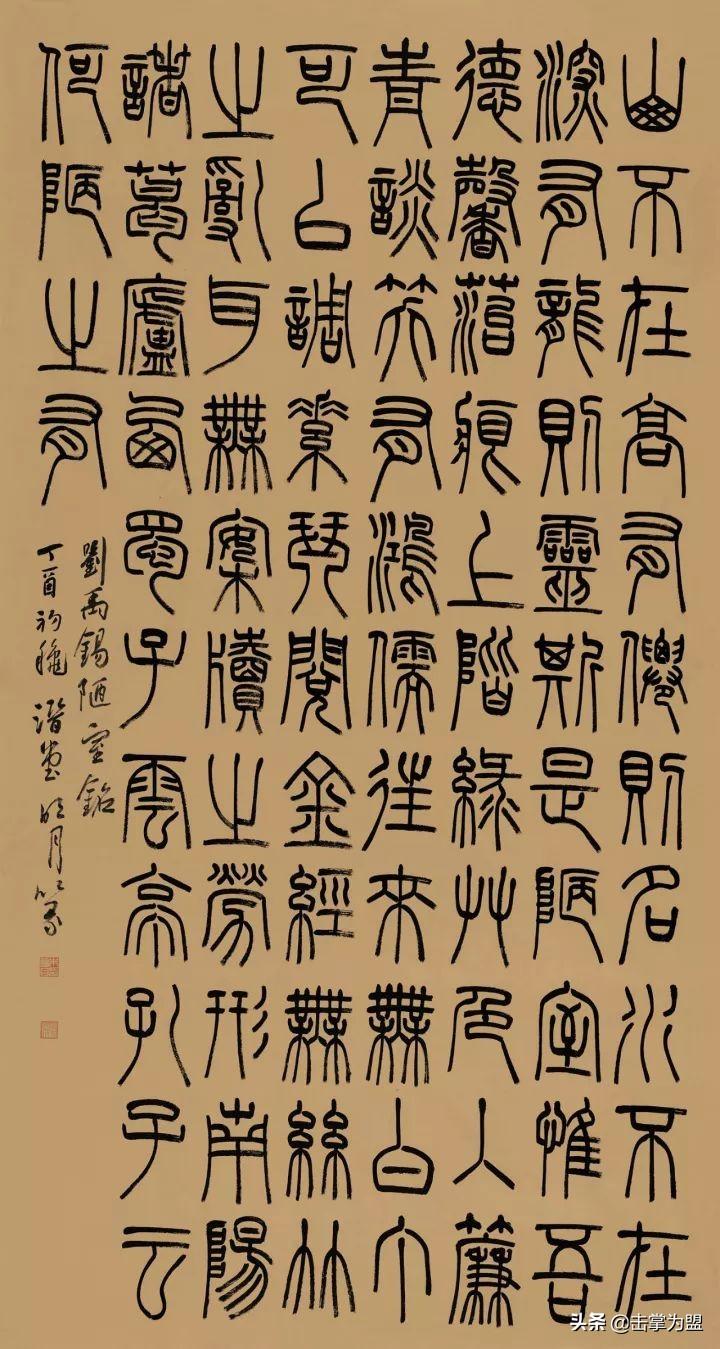 山不在高有僊則名水不在
深有龍則靈斯是陋室惟吾
德馨菭痕上階綠艸色入簾
青談笑有鴻儒往來無白丁
可以調素琴閱金經無絲竹
之亂耳無案牘之勞形南陽
諸葛廬西蜀子雲亭孔子云
何陋之有
劉禹錫陋室銘
丁酉初穐潛堂明月篆
头条 @击掌为盟